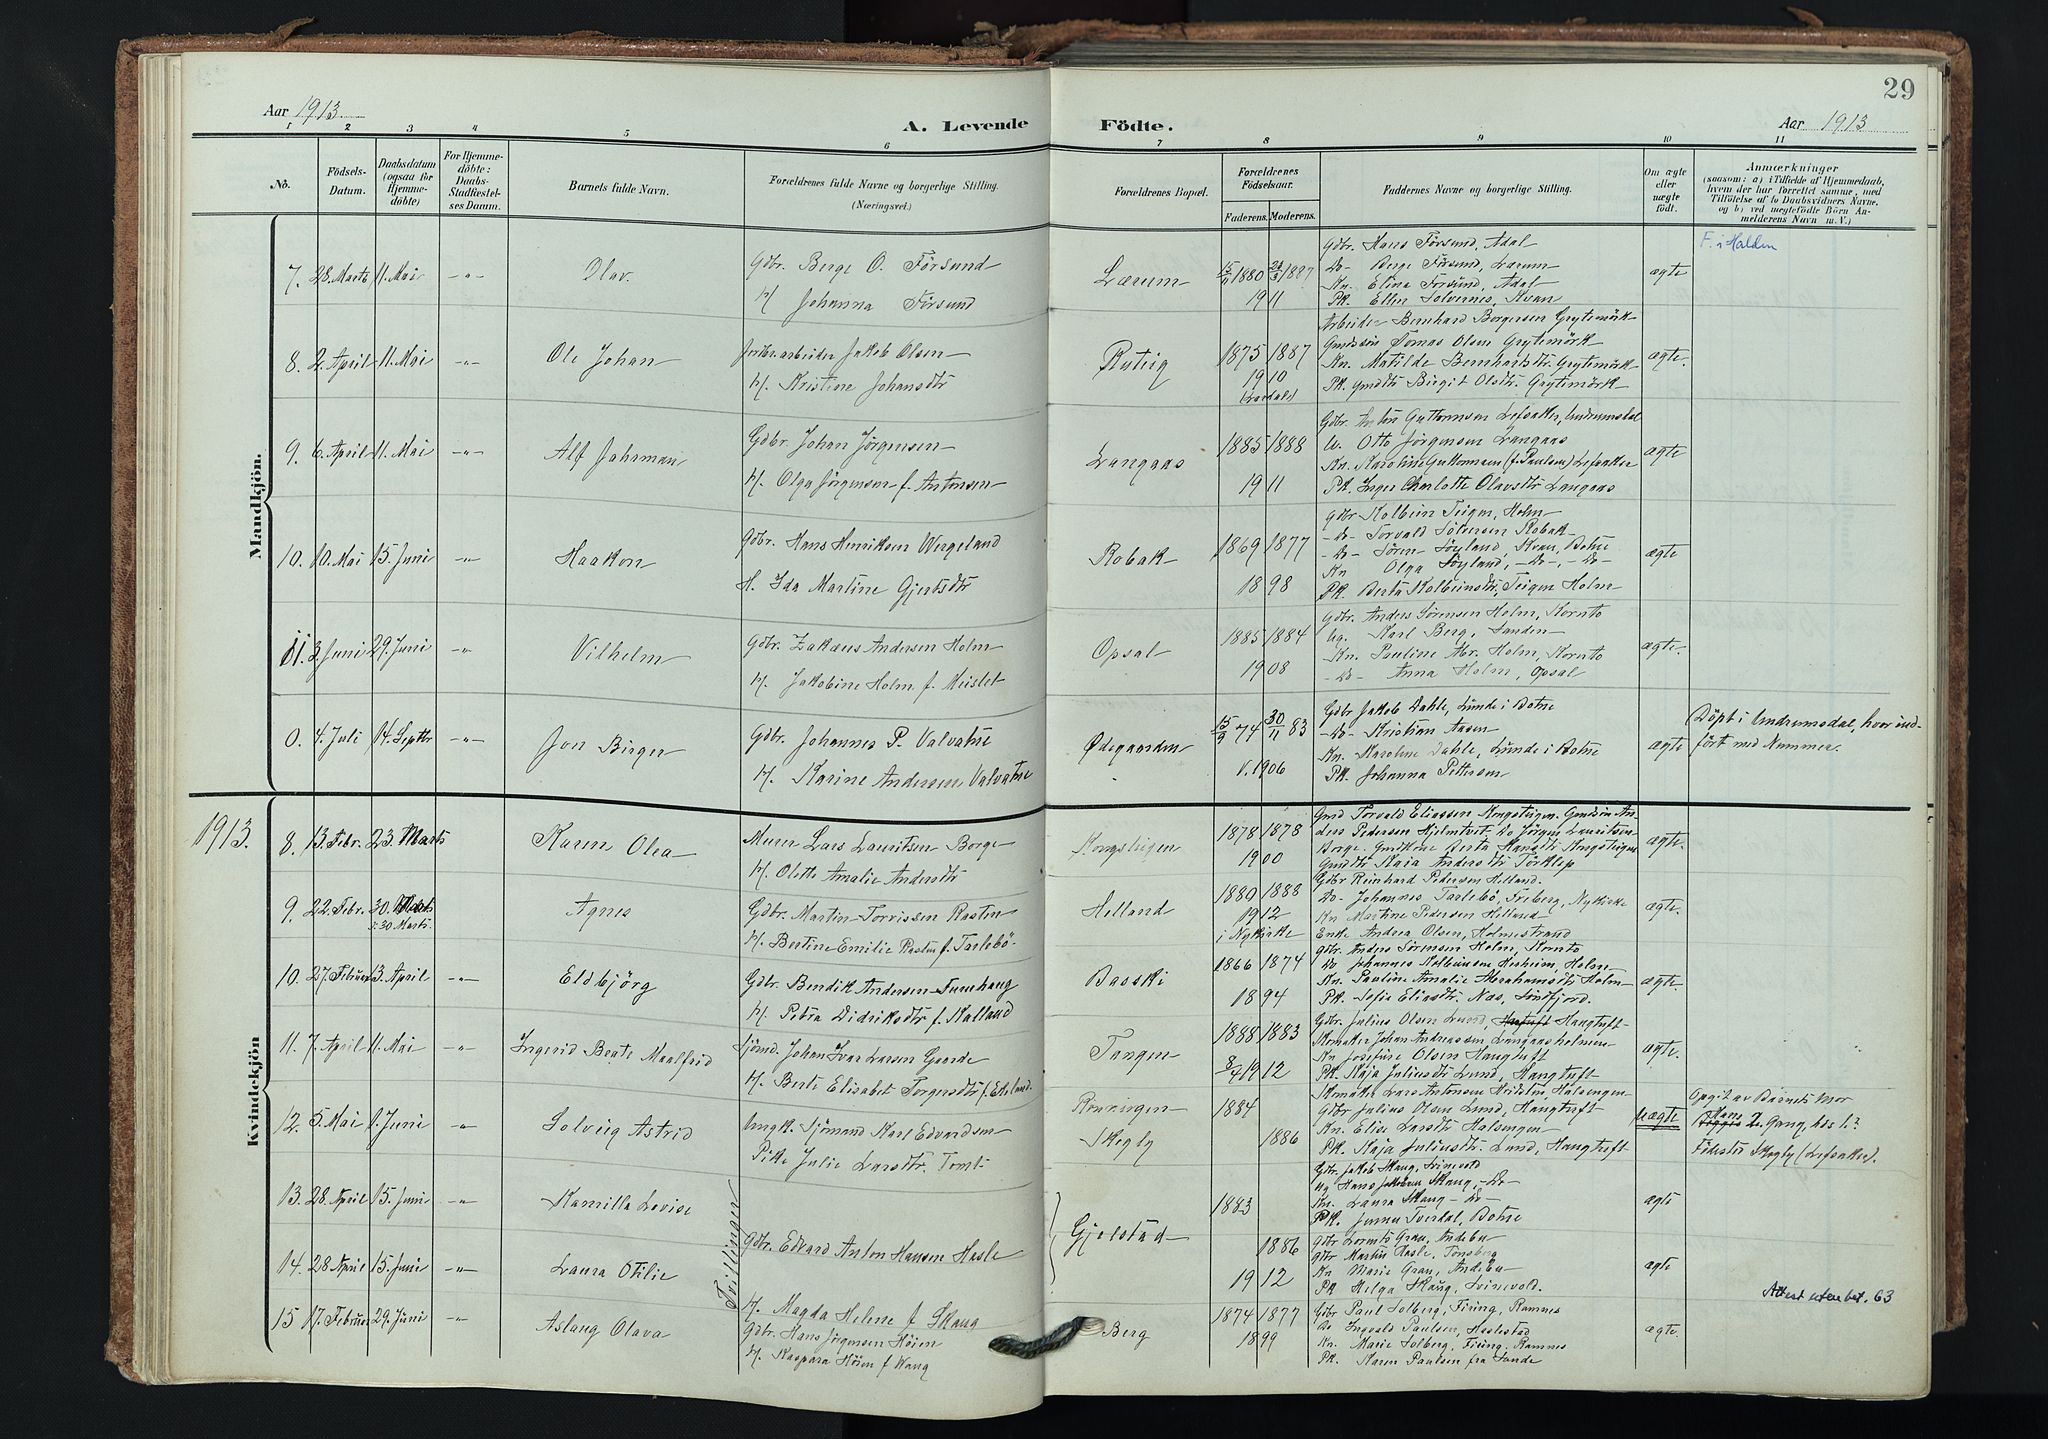 29
Aar 1913
A. Levende Födte.
Aar 1913
1 2 3 4 5 6 7 8 9 10 11
No.
Födsels-Datum.
Daabsdatum (ogsaa for Hjemme-döbte)
For Hjemme-döbte: Daabs-Stadfæstel-ses Datum.
Barnets fulde Navn.
Forældrenes fulde Navne og borgerlige Stilling.
(Næringsvei.)
Forældrenes Bopæl.
Forældrenes Födselsaar.
Faderens. Moderens.
Faddernes Navne og borgerlige Stilling.
Om ægte eller uægte födt.
Anmærkninger
(saasom: a) i Tilfælde af Hjemmedaab,
hvem der har forrettet samme, med
Tilföielse af to Daabsvidners Navne,
og b) ved uægtefödte Börn An-
melderens Navn m. V.)
Mandkjön.
7. 28. Marts 11. Mai -"- Olav.
Gdbr. Berge O. Försund
H/ Johanna Försund
Lærum
1880 1887
1911
Gdbr. Hans Försund, Adal
Do- Berge Försund, Lærum
Kn. Elina Försund, Adal
Pk. Ellen Solvernes, Kvan
ægte
F. i Halden
8. 2. April 11. Mai -"- Ole Johan
Jernbr.arbeider Jakob Olsen
H/. Kristine Johansdtr
1875 1887
1910
Arbeider Bernhard Borgersen Grytemörk
Gmdsön Tomas Olsen Grytemörk
Kn. Matilde Bernhartsdtr Grytemörk
Pk. Gmdtr Birgit Olsdtr. Grytemörk
ægte.
9. 6. April 11. Mai -"- Alf Jahrman
Gdbr. Johan Jörgensen
H/. Olga Jörgensen f. Antonsen
Langaas
1885 1888
1911
Gdbr. Anton Guttormsen Lefsaker, Undrumsdal
U. Otto Jörgensen Langaas
Kn. Karoline Guttormsen (f. Paulsen) Lefsaker
Pk. Inger Charlotte Olavsdtr Langaas
ægte
10. 10. Mai 15. Juni -"- Haakon
Gdbr. Hans Henriksen Wergeland
H. Ida Martine Gjertsdtr
Robak
1869 1877
1898
Gdbr Kolbein Teigen, Holm
-Do- Torvald Solversen Robak
-Do- Sören Söyland, Kvan, Botne
Kn Olga Söyland, -Do-, -Do-
Pk. Berta Kolbeinsdtr, Teigen Holm
ægte
11. 3. Juni 29. Juni -"- Vilhelm
Gdbr. Zakæus Andersen Holm
H/. Jakobine Holm f. Meislet
Opsal
1885 1884
1908
Gdbr. Anders Sörensen Holm, Kornto
Ug. Karl Berg, Sanden
Kn. Pauline Abr. Holm, Kornto
-Do- Anna Holm, Opsal
ægte.
0. 4. Juli 14. Septbr -"- Jon Birger
Gdbr. Johannes P. Valvatne
H/. Karine Andersen Valvatne
Ødegaarden
15/9 74 30/11 83
V. 1906
Gdbr Jakob Dahle, Sünde i Botne
-Do- Kristian Aasen
Kn. Karoline Dahle, Sünde i Botne
Pk. Johanna Pettersen
ægte
Döpt i Undrumsdal, hvor ind-
fört med Nummer.
Kvindekjön
1913.
8. 13. Febr. 23. Marts Karen Olea
Murer Lars Lauritsen Borge
H/. Olette Amalie Andersdtr
Kongsteigen
1878 1878
1900
Gmd Torvald Eliassen Kongsteigen. Gmdsön An-
ders Pedersen Hjelmtvet. Do Jörgen Lauritsen
Borge. Gmdkone Berta Hansdtr Kongsteigen
Gmdtr Kaja Andersdtr Törklep
ægte.
9. 22. Febr. 30. Marts
ↄ: 30 Marts.
Agnes
Gdbr. Martin Torvissen Rasten
H/. Bertine Emilie Rasten f. Tarlebö
Helland
1880 1888
1912
i Nykirke
Gdbr Reinhard Pedersen Helland.
Do- Johannes Tarlebö, Freberg, Nykirke
Kn Martine Pedersen Helland
Enke Andrea Olsen, Holmestrand
ægte.
10. 27. Februar 13. April -"- Eldbjörg
Gdbr. Bendik Andersen Tumhaug
H/. Petra Didriksdtr f. Kalland
Basski
1866 1874
1894
Gdbr. Anders Sörensen Holm, Kornto
Do Johannes Kolbeinsen Kisheim, Holm
Kn. Pauline Amalie Abrahamsdtr Holm
Pk. Sofie Eliasdtr. Næs, Söndfjord.
ægte.
11. 7. April 11. Mai -"- Ingerid Beate Maalfrid
Sjömd. Johan Ivar Larsen Gaarde
H/. Berte Elisabet Torgersdtr f. Ekeland
Tangen
1888 1883
8/4 1912
Gdbr. Julius Olsen Lund, Haugtuft
Skomaker Johan Andreassen Langaasholmen
Kn Josefine Olsen Haugtuft
Pk. Kaja Juliusdtr Lund, Haugtuft
ægte.
12. 5. Mai 1. Juni -"- Solveig Astrid
Ungk. Sjömand Karl Edvardsen
Pike Julie Larsdtr. Tomt
Rönningen
Skogly
1884
1886
Skomaker Lars Antonsen Hvidsten, Halsengen
Gdbr Julius Olsen Lund, Haugtuft
Kn. Elise Larsdtr Halsengen
Pk. Kaja Juliusdtr. Lund, Haugtuft
uægte
Opgit av Barnets Mor
Hans 2. Gang, hos l.?
Födested Skogly (Lefsaker).
Tvillinger
13. 28. April 15. Juni -"- Kamilla Lovise
14. 28 April 15. Juni -"- Laura Otilie
Gdbr. Edvard Anton Hansen Hasle
H/. Magda Helene f Skaug
Gjelstad
1883
1886
1912
Gdbr. Jakob Skaug, Svinevold
Ug Hans Jakobsen Skaug, -Do-
Kn. Laura Skaug -Do-
Pk. Jenny Tverdal, Botne
ægte
Gdbr Lorents Gran, Andebu
Gdbr Martin Hasle, Tönsberg
Kn Marie Gran, Andebu
Pk Helga Skaug, Svinevold.
ægte
15 17. Februar 29. Juni -"- Aslaug Olava
Gdbr. Hans Jörgensen Höien
H/. Kaspara Höien f Kaug
Berg
1874 1877
1899
Gdbr Paul Solberg, Firing, Ramnes
Do Ingvald Paulsen, Haslestad
Kn. Marie Solberg, Firing, Ramnes
Pk. Karen Paulsen fra Sande
ægte.
Attest uten bet. 63